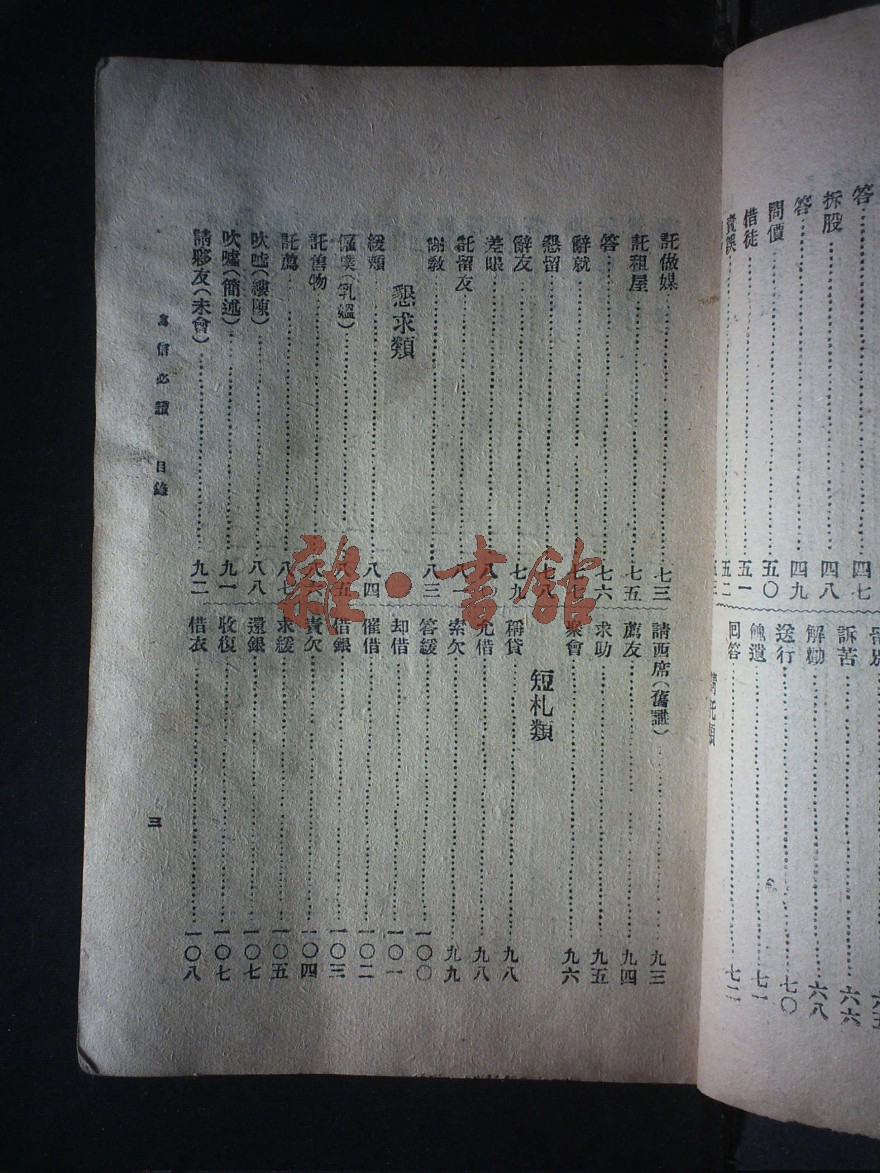 答……四七
拆股……四八
答……四九
問價……五〇
借徒……五一
五二
訴苦……六六
解勸……六八
送行……七〇
餽遺……七一
回答……七二
託做媒……七三
託租屋……七五
答……七六
辭就……七七
懇留……七八
辭友……七九
差眼……八
託留友……八一
謝教……八三
懇求類
緩頰……八四
僱僕(乳媼)……八五
託售物……八六
託薦……八七
吹噓(縷陳)……八八
吹噓(簡述)……九一
請夥友(未會)……九二
請西席(舊誰)……九三
薦友……九四
求助……九五
聚會……九六
短札類
稱貸……九八
允借……九八
索欠……九九
答緩……一〇〇
却借……一〇一
催借……一〇二
借銀……一〇三
責欠……一〇四
求緩……一〇五
還銀……一〇七
收復……一〇七
借衣……一〇八
寫信必讀 目錄
三
雜·書館